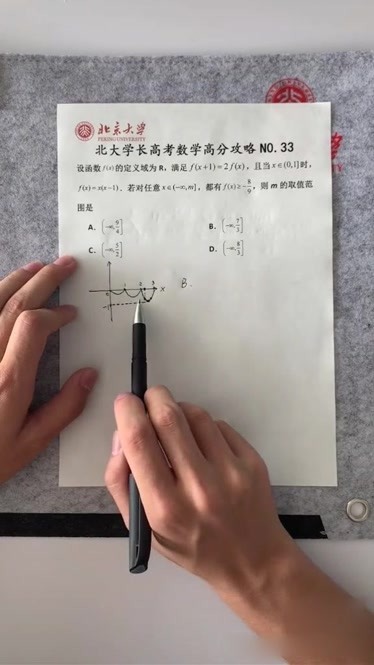 北京大学
PEKING UNIVERSITY
北大学长高考数学高分攻略 NO.33
设函数 f(x) 的定义域为 R，满足 f(x+1)=2 f(x)，且当 x∈(0,1] 时，
f(x)=x(x−1)．若对任意 x∈(−∞,m]，都有 f(x)≥−8/9，则 m 的取值范
围是
A. (−∞, 9/4] B. (−∞, 7/3]
C. (−∞, 5/2] D. (−∞, 8/3]
x B.